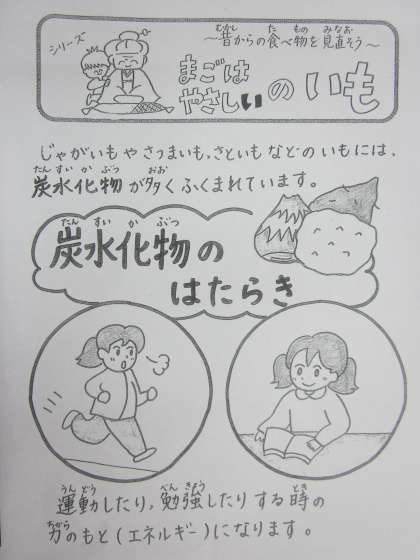 シリーズ
～昔からの食べ物を見直そう～
まごは
やさしい
のいも
じゃがいもやさつまいも、さといもなどのいもには、
炭水化物が多くふくまれています。
炭水化物の
はたらき
運動したり、勉強したりする時の
力のもと(エネルギー)になります。